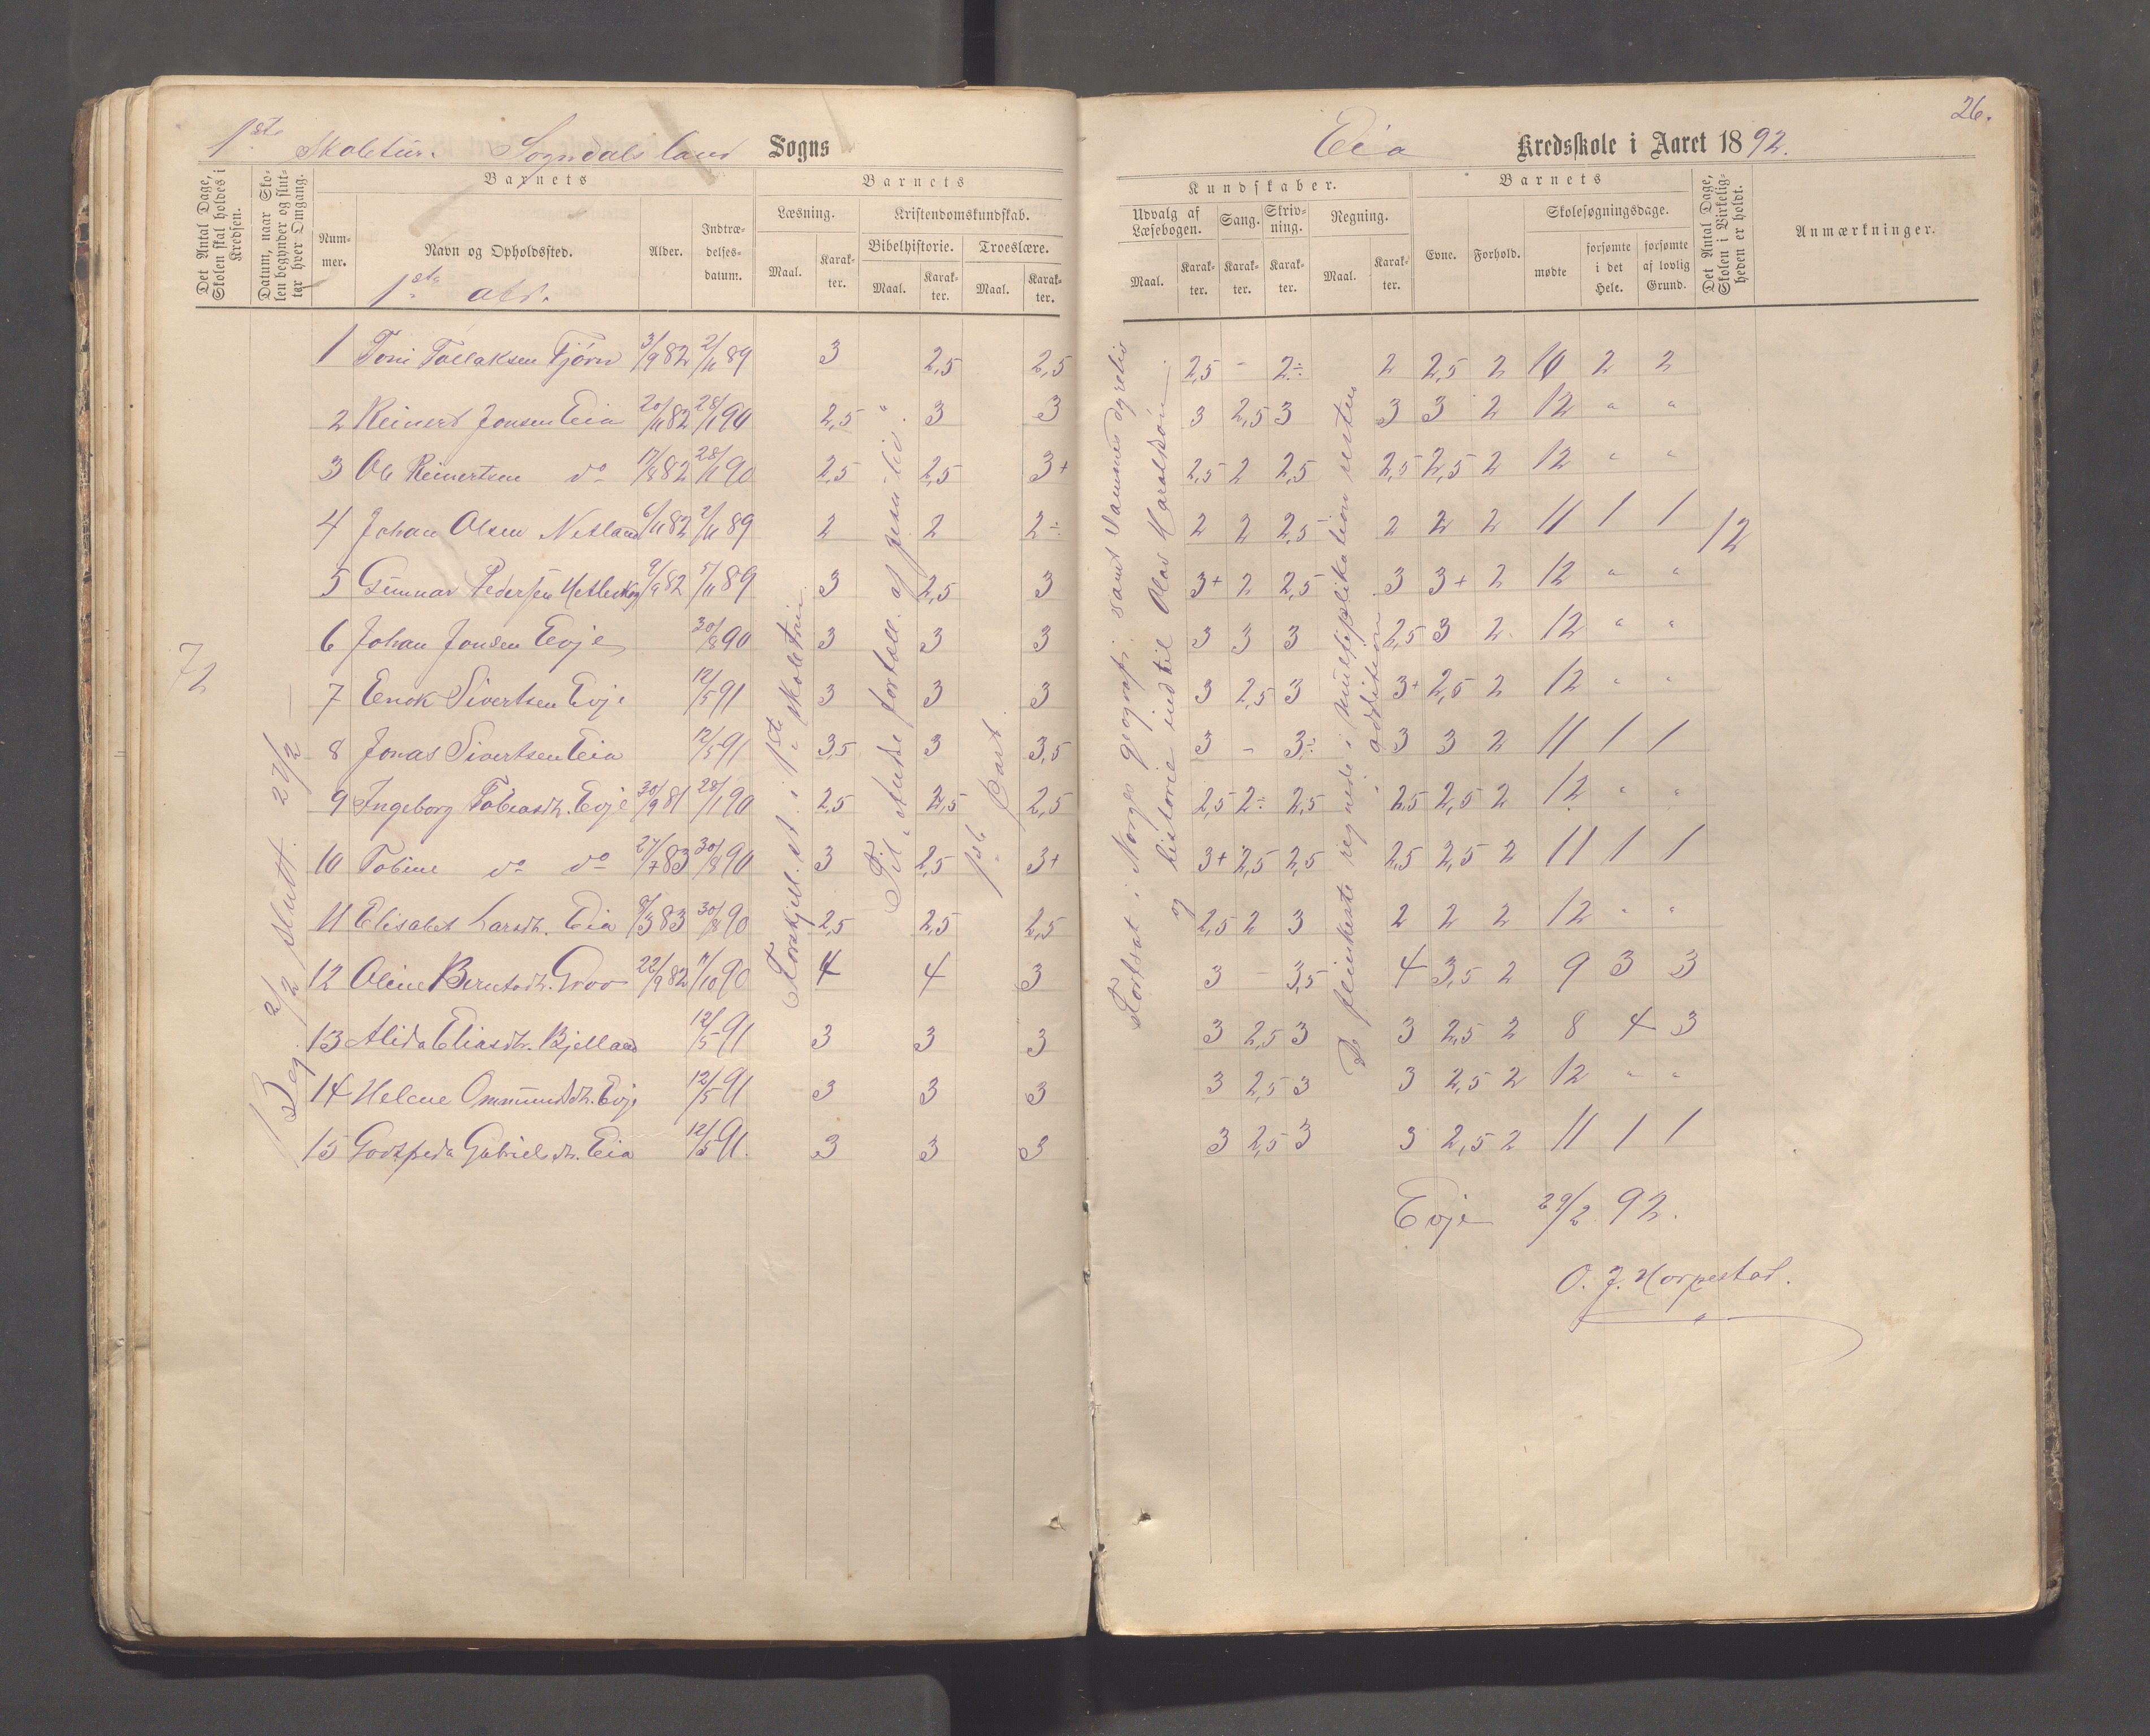 1ste Skoletur. Sogndals land Sogns
Eia Kredsskole i Aaret 1892.
26.
Det Antal Dage, Skolen skal holdes i Kredsen.
Datum, naar Skolen begynder og slutter hver Omgang.
Barnets
Nummer.
Navn og Opholdssted.
Alder.
Indtrædelses-datum.
Barnets
Læsning.
Kristendomskundskab.
Bibelhistorie.
Troeslære.
Maal. Karakter. Maal. Karakter. Maal. Karakter.
Kundskaber.
Udvalg af Læsebogen. Sang. Skrivning. Regning.
Maal. Karakter. Karakter. Karakter. Maal. Karakter.
Barnets
Evne. Forhold.
Skolesøgningsdage.
mødte
forsømte i det Hele.
forsømte af lovlig Grund.
Det Antal Dage, Skolen i Virkeligheden er holdt.
Anmærkninger.
1ste afd.
1 Toni Tollaksen Fjørn 3/9 82 2/11 89 3 2,5 2,5 2,5 - 2÷ 2 2,5 2 10 2 2
2 Reinert Jonsen Eia 20/11 82 28/1 90 2,5 3 3 3 2,5 3 3 3 2 12 " "
3 Ole Reinertsen do 17/8 82 28/1 90 2,5 2,5 3+ 2,5 2 2,5 2,5 2,5 2 12 " "
4 Johan Olsen Netland 6/11 82 2/11 89 2 2 2÷ 2 2 2,5 2 2 2 11 1 1
12
5 Gunnar Pedersen 2/9 82 5/11 89 3 2,5 3 3+ 2 2,5 3 3+ 2 12 " "
6 Johan Jonsen Evje 30/8 90 3 3 3 3 3 3 2,5 3 2 12 " "
72
7 Enok Sivertsen Evje 12/5 91 3 3 3 3 2,5 3 3+ 2,5 2 12 " "
8 Jonas Sivertsen Eia 12/5 91 3,5 3 3,5 3 - 3÷ 3 3 2 11 1 1
9 Ingeborg Tobiasdt. Evje 30/9 81 28/1 90 2,5 2,5 2,5 2,5 2÷ 2,5 2,5 2,5 2 12 " "
10 Tobine do do 27/7 83 30/8 90 3 2,5 3+ 3+ 2,5 2,5 2,5 2,5 2 11 1 1
11 Elisabet Larsdt. Eia 8/3 83 30/8 90 2,5 2,5 2,5 2,5 2 3 2 2 2 12 " "
12 Oline Berntsdt. 22/9 82 11/10 90 4 4 3 3 - 3,5 4 3,5 2 9 3 3
13 Alida Eliasdt. Kjelland 12/5 91 3 3 3 3 2,5 3 3 2,5 2 8 4 3
14 Helene Ommundsdt. Evje 12/5 91 3 3 3 3 2,5 3 3 2,5 2 12 " "
15 Gabrielsdt. Eia 12/5 91. 3 3 3 3 2,5 3 3 2,5 2 11 1 1
Beg. 2/2 slutt. 27/2
Forskjell. st. i 1ste skoletrin.
Til Andre fortæll. af Jesu lid.
1ste Part.
Fortsat i Norges geografi, samt
og historie indtil Olav Haraldsøn.
De flinkeste regnede i multiplikation resten
i addition
Evje 29/2 92.
O. J. Horpestad.